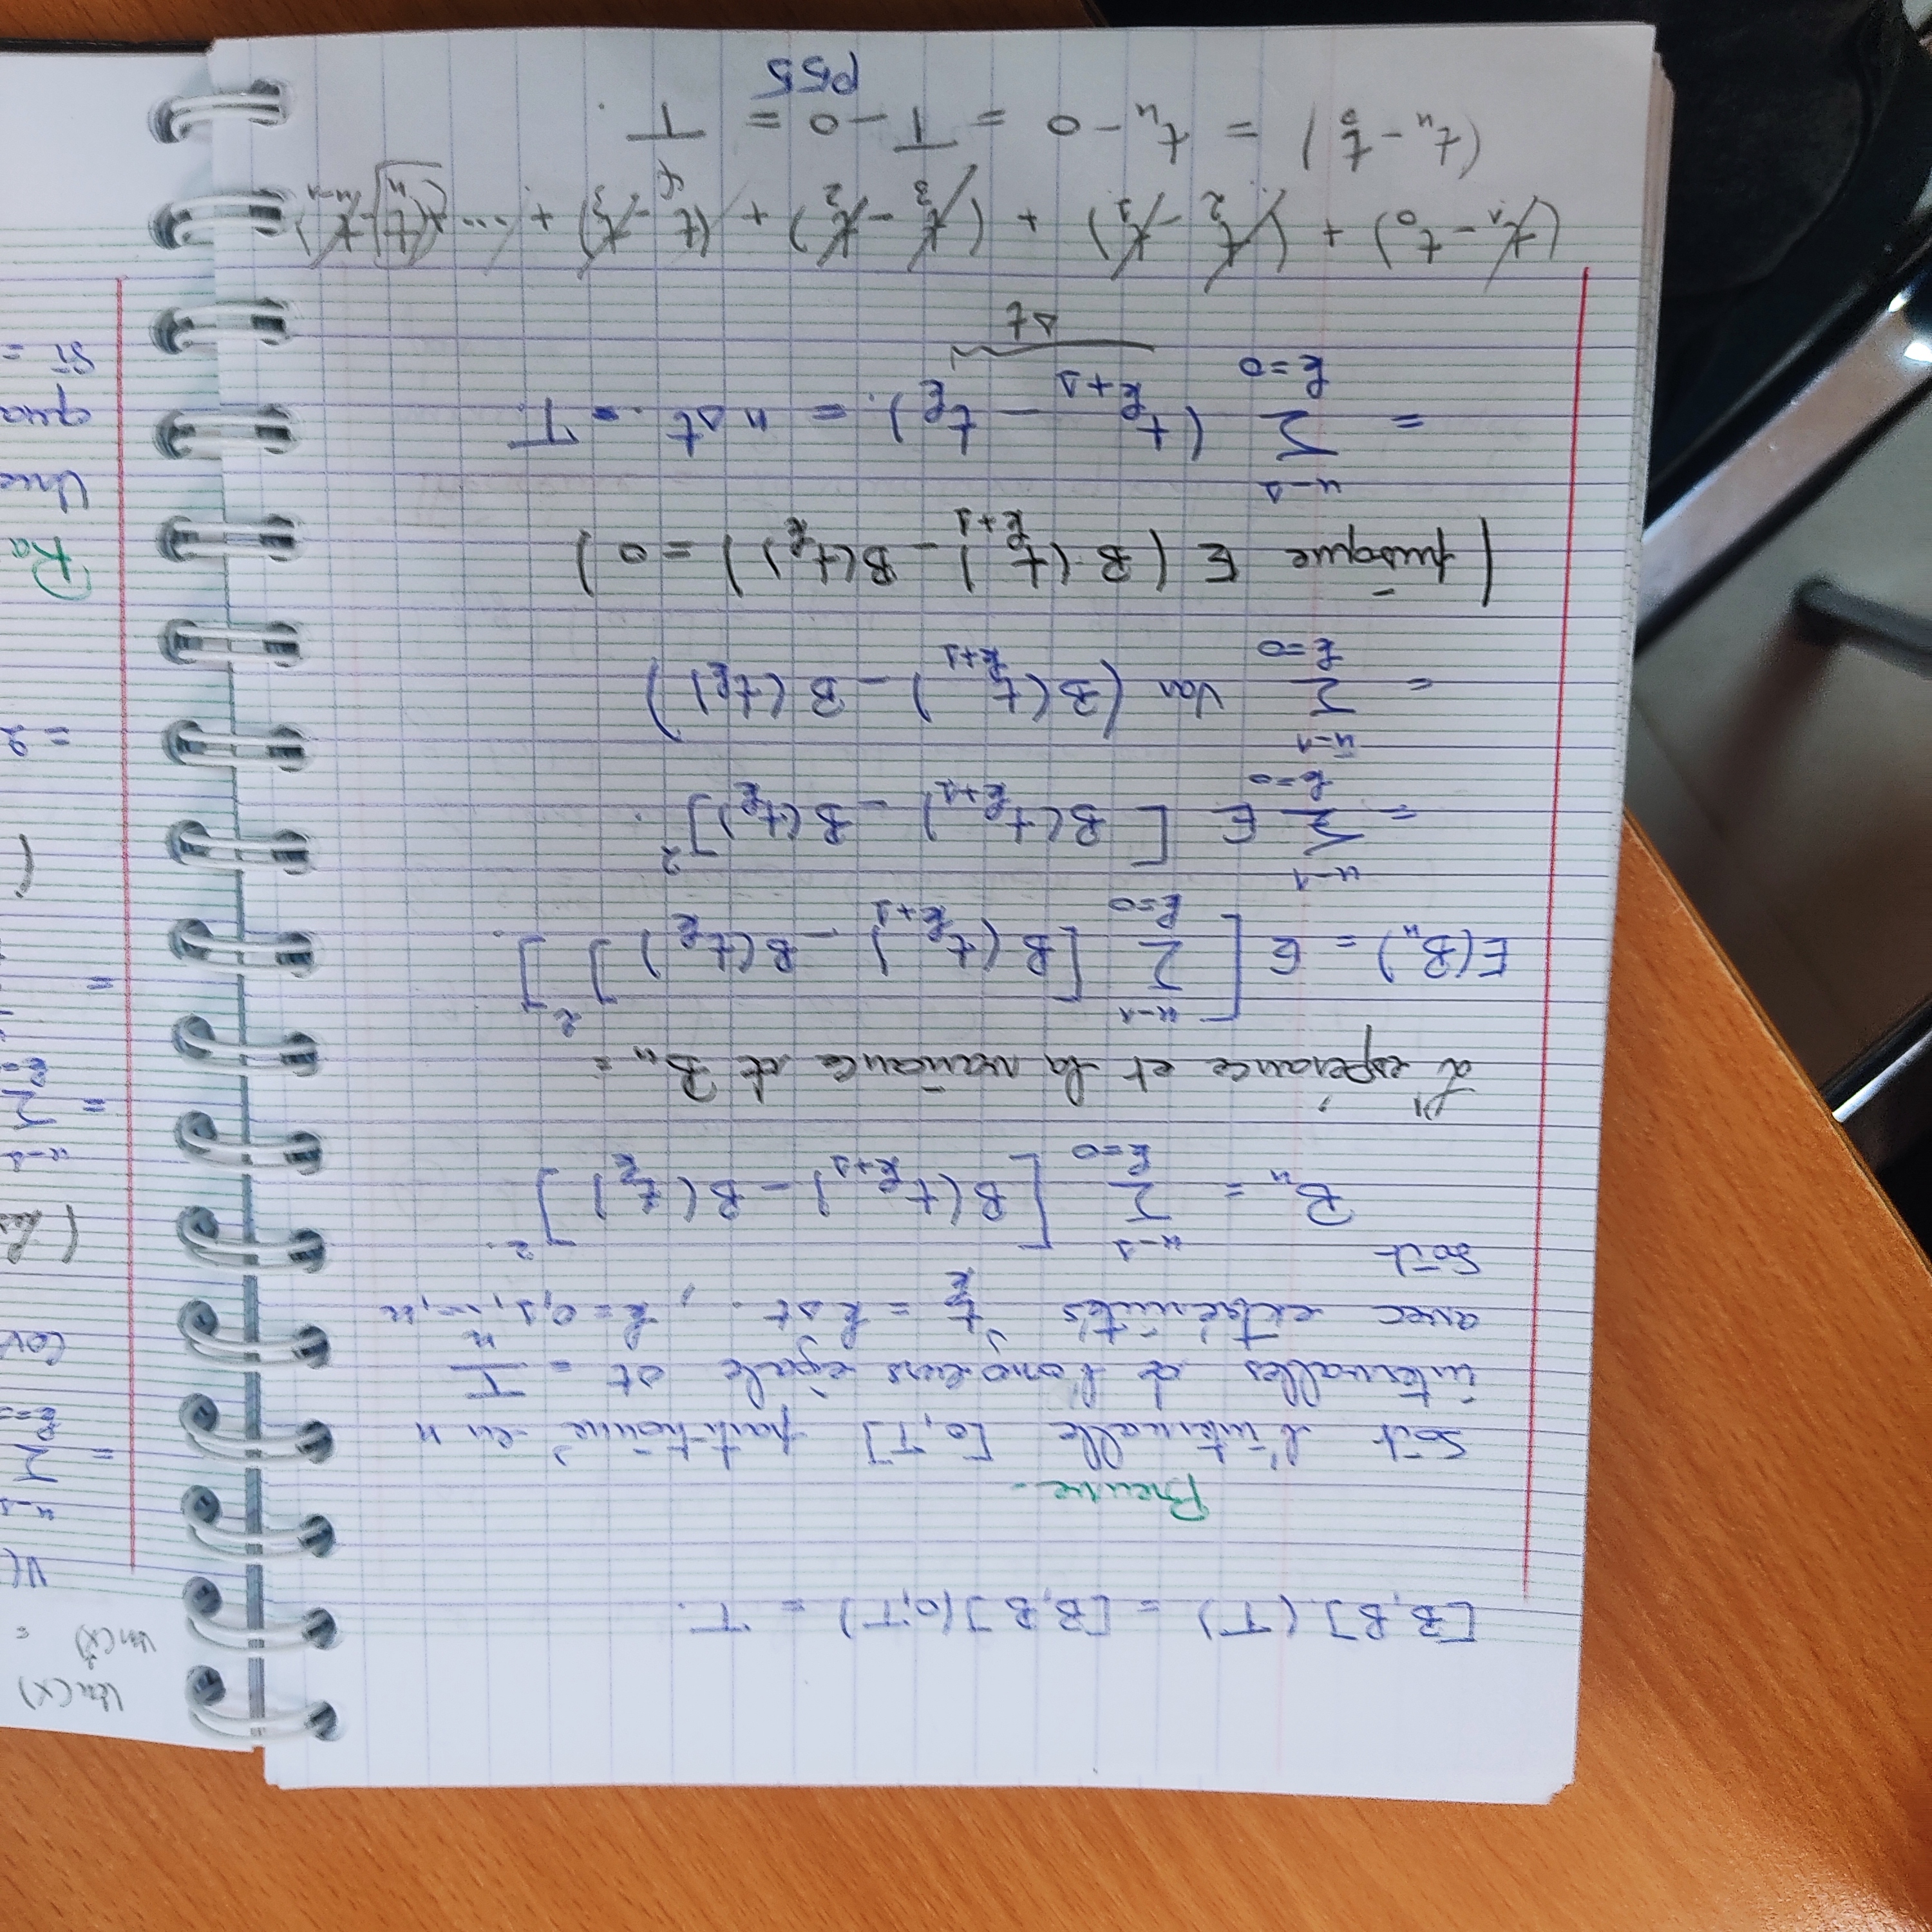 [B,B](T) = [B,B](0,T) = T.
Preuve-
Soit l'intervalle [0,T] partitionné en n
intervalles de l'ongueurs égale Δt = T/n
avec extrémités t_k = kΔt. , k=0,1,...,n
Soit
B_n = Σ_{k=0}^{n-1} [B(t_{k+1}) - B(t_k)]^2.
L'espérance et la variance de B_n =
E(B_n) = E[Σ_{k=0}^{n-1} [B(t_{k+1}) - B(t_k)]^2].
= Σ_{k=0}^{n-1} E [B(t_{k+1}) - B(t_k)]^2.
= Σ_{k=0}^{n-1} Var (B(t_{k+1}) - B(t_k))
(puisque E(B(t_{k+1}) - B(t_k)) = 0)
= Σ_{k=0}^{n-1} (t_{k+1} - t_k). = nΔt. = T.
Δt
(t_1 - t_0) + (t_2 - t_1) + (t_3 - t_2) + (t_4 - t_3) + .... + (t_n - t_{n-1})
(t_n - t_0) = t_n - 0 = T - 0 = T.
P55
Var(X)
=
V(
n-1
= Σ
k=
Cov
(Les
n-1
= Σ
k=
=
(
= 2
Ra
Une
qua
si =